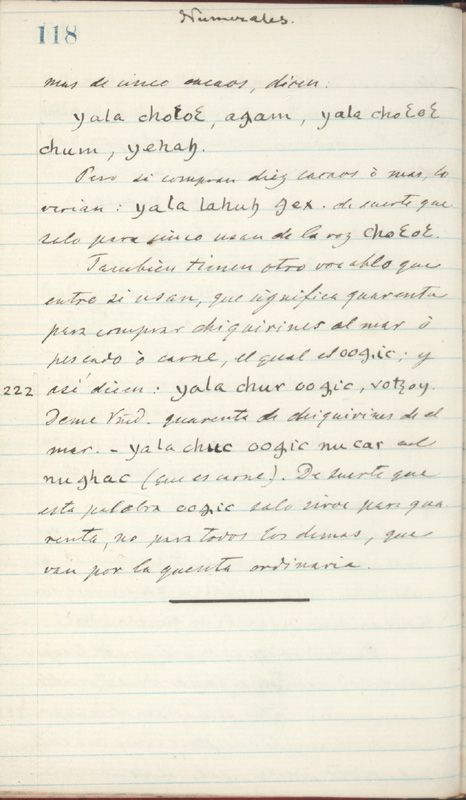 Numerales.
118
mas de cinco cacaos, dicen:
yala choꜫoꜫ, aꜭam, yala choꜫoꜫ
chum, yehaꜧ.
Pero si compran diez cacaos ò mas, lo
varian: yala lahuꜧ ꜭex. de suerte que
solo para sinco usan de la voz choꜫoꜫ.
Tambien tienen otro vocablo que
entre si usan, que significa quarenta
para comprar chiquirines al mar ò
pescado ò carne, el qual el ooꜭic; y
222 asi dicen: yala chur ooꜭic, votꜫoy.
Deme Vmd. quarenta de chiquirines de el
mar. - yala chuc ooꜭic nu car
nughac (que es carne). De suerte que
esta palabra ooꜭic solo sirve para qua
renta, no para todos los demas, que
van por la quenta ordinaria.